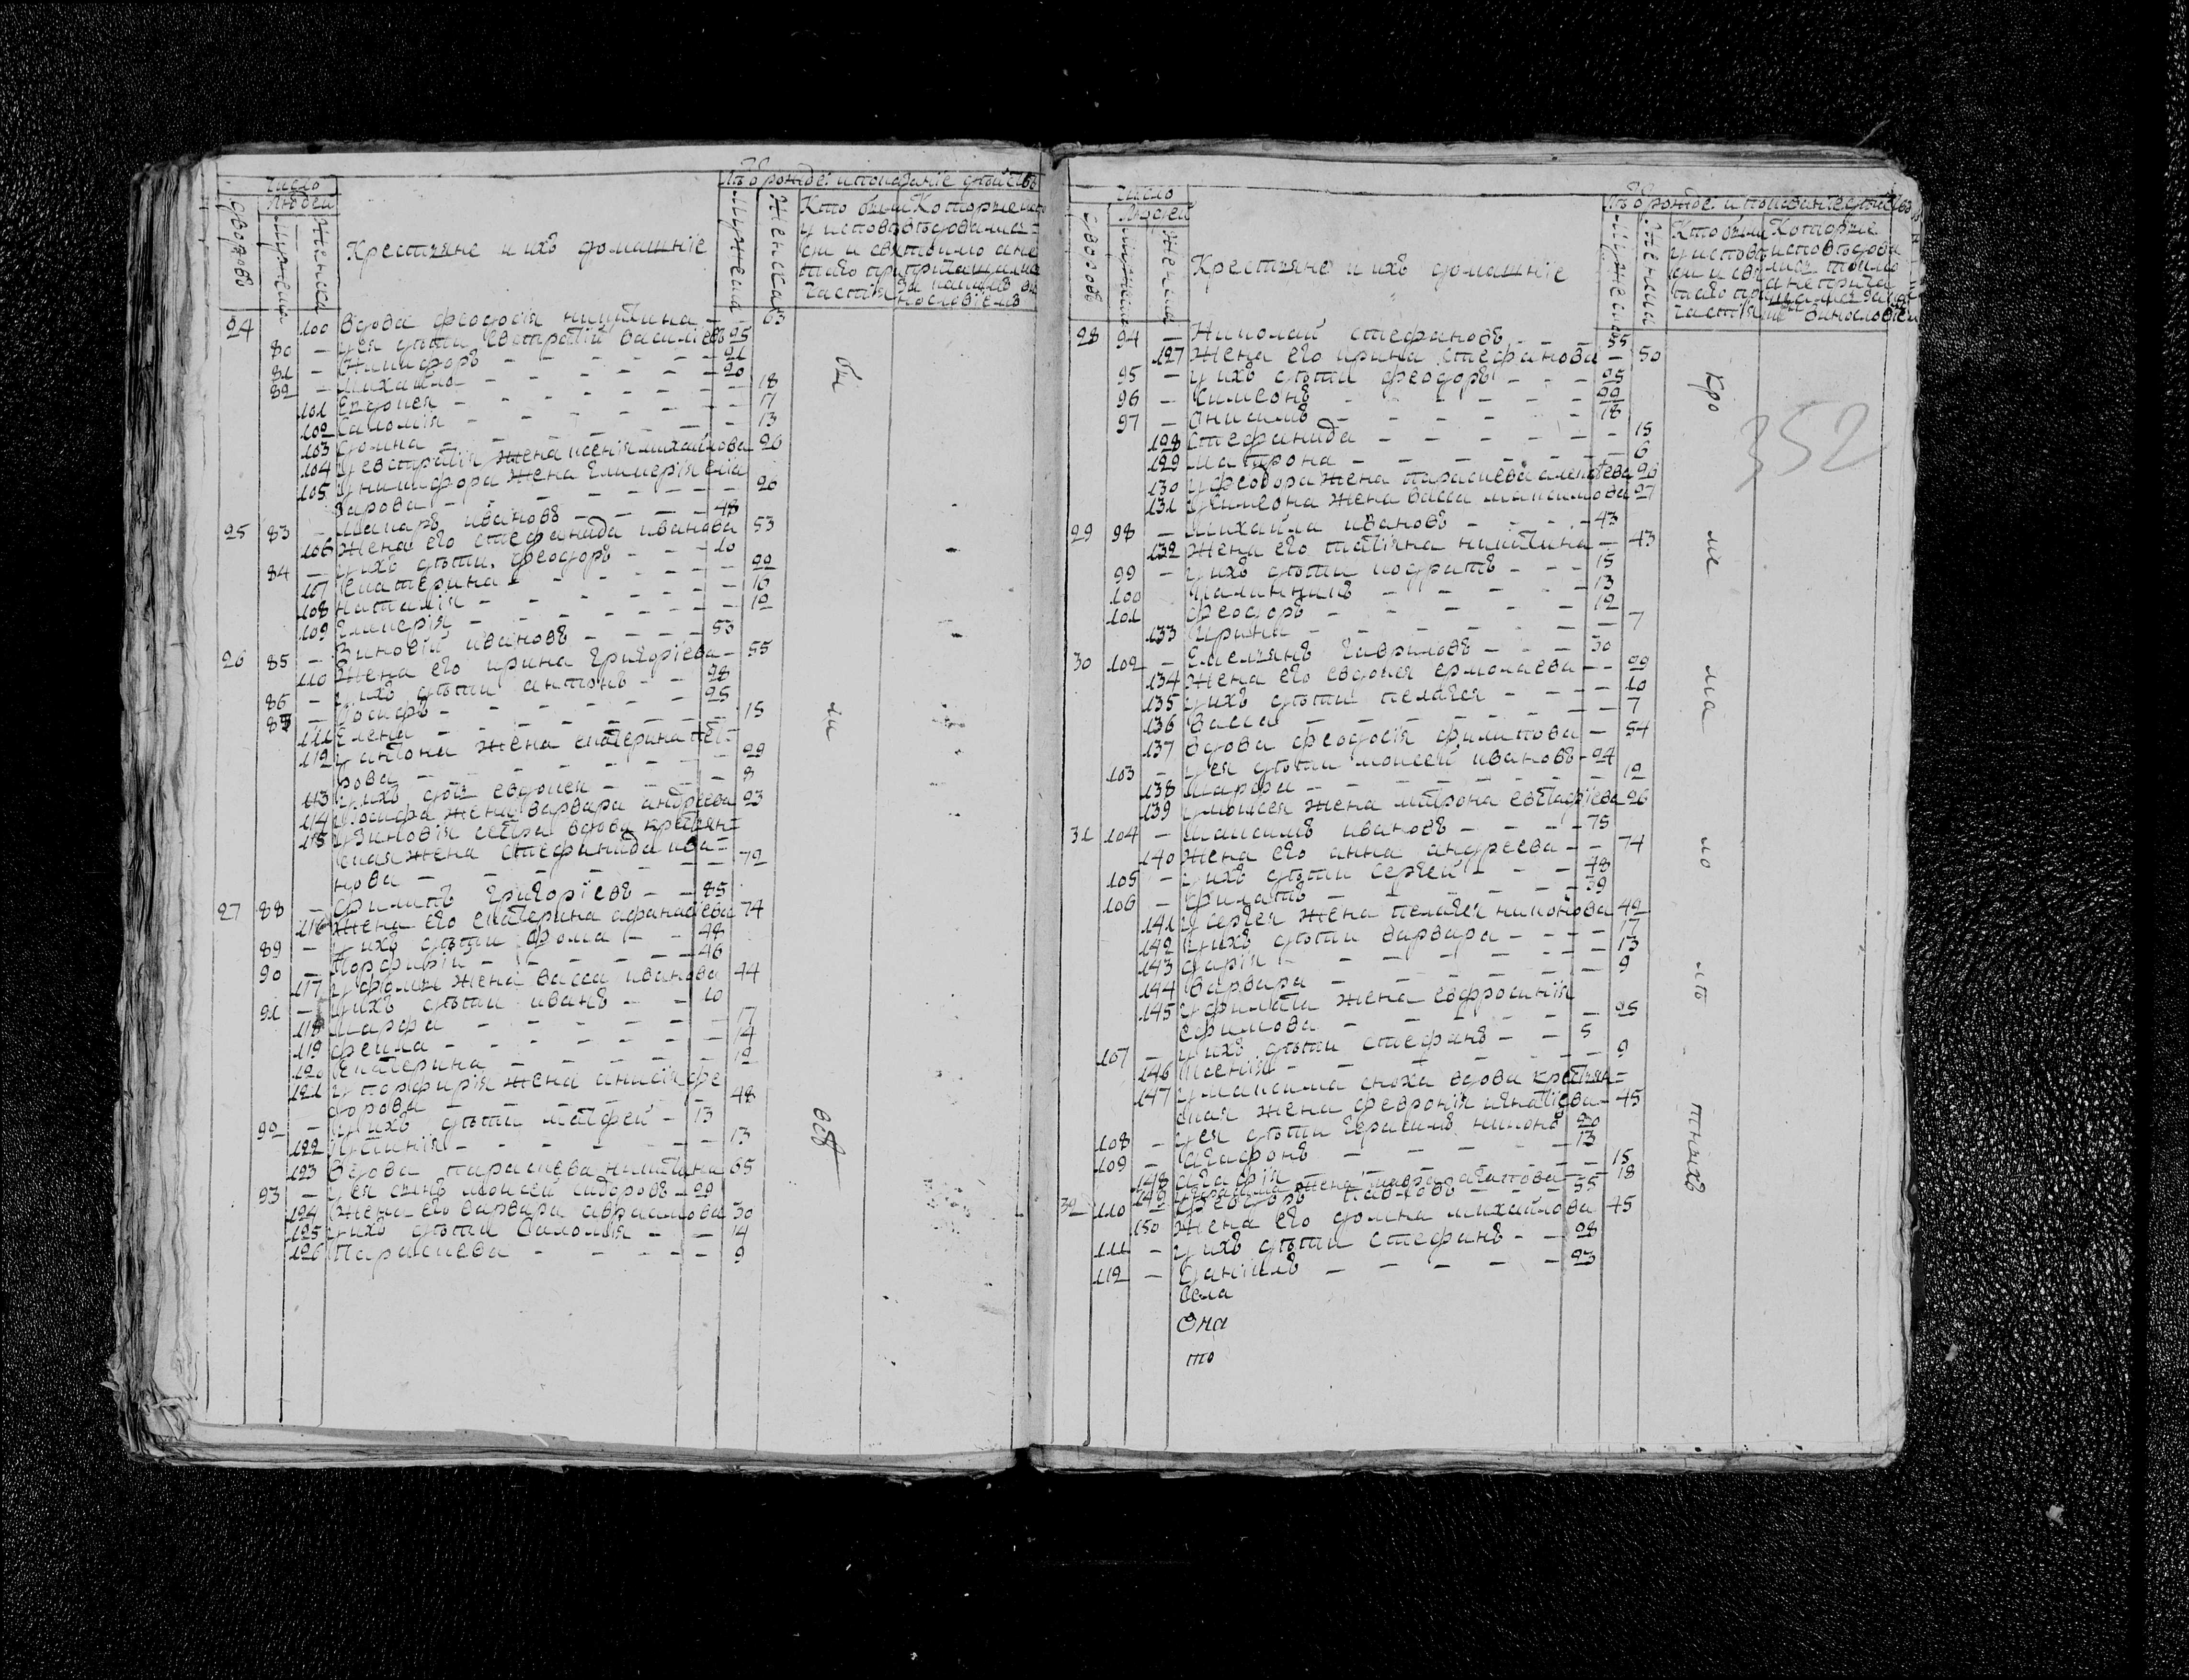 Число
Людей
Дворовъ
Мужеска
Женска
Крестьяне и ихъ домашніе
Мужеска
Женска
24 100 Вдова феодосія никитина - 63
80 - у ея дѣти евстратій васильевъ 25
81 - Никифоръ - 21
82 - Михаило - 20
101 Евдокея - 18
102 Саломія - 17
103 Домна - 13
104 у евстратія жена ксенія михайлова 26
105 у никифора жена гликерія еліа
зарова - 26
25 83 - Макаръ ивановъ - 48
106 Жена его стефанида иванова 53
84 - у ихъ дѣти феодоръ - 10
107 Екатерина - 22
108 наталія - 16
109 Гликерія - 12
26 85 - Зиновій ивановъ - 53
110 Жена его ирина григоріева - 55
86 - у ихъ дѣти антонъ - 28
87 - Іосифъ - 25
111 Елена - 15
112 у антона жена екатерина пет
рова - 29
113 у ихъ дочь евдокея - 8
114 у Іосифа жена варвара андреева 23
115 у Зиновія сестра вдова крестьян=
ская жена стефанида ива=
нова - 72
27 88 - Филипъ григоріевъ - 85
116 Жена его екатерина афанасіева 74
89 - у ихъ дѣти фома - 48
90 - Порфирій - 46
117 у фомы жена васса иванова 44
91 - у ихъ дѣти иванъ - 10
118 Марфа - 17
119 фекла - 14
120 Екатерина - 12
121 у порфирія жена анисія фео
дорова - 48
92 - у ихъ дѣти матфей - 13
122 Устинія - 13
123 Вдова параскева никитина 65
93 - у ея сынъ моисей сидоровъ - 29
124 Жена его варвара авраамова 30
125 у ихъ дѣти Саломія - 14
126 Параскева - 9
бы
ли
всѣ
Число
Людей
Дворовъ
Мужеска
Женска
Крестьяне и ихъ домашніе
Мужеска
Женска
352
28 94 - Николай стефановъ - 55
127 Жена его ирина стефанова - 50
95 - у ихъ дѣти феодоръ - 25
96 - Симеонъ - 22
97 - Онисимъ - 18
128 Стефанида - 15
129 Матрона - 6
130 у феодора жена параскева алексеева 26
131 у Симеона жена васса максимова 27
29 98 - Михайла ивановъ - 43
132 Жена его татіяна никитина - 43
99 - у ихъ дѣти кодратъ - 15
100 Калинникъ - 13
101 феодоръ - 12
133 Ирина - 7
30 102 - Емельянъ гавриловъ - 30
134 Жена его евдокея ермолаева - 29
135 у ихъ дѣти пелагея - 10
136 Васса - 7
137 Вдова феодосія филипова - 54
103 - у ея дѣти моисей ивановъ - 24
138 Марфа - 12
139 у моисея жена матрона евстафіева 26
31 104 - Максимъ ивановъ - 75
140 Жена его анна андреева - 74
105 - у ихъ дѣти сергей - 48
106 - Филатъ - 39
141 у сергея жена пелагея никонова 42
142 у ихъ дѣти варвара - 17
143 дарія - 13
144 Варвара - 9
145 у филата жена евфросинія
ефимова - 25
107 - у ихъ дѣти стефанъ - 5
146 Ксенія - 9
147 у максима сноха вдова крестьян=
ская жена февронія игнатіева - 45
108 - у ея дѣти герасимъ никоновъ 20
109 - Агафонъ - 13
148 агафія - 15
149 у герасима жена мавра агапова - 18
32 110 - Феодоръ павловъ - 55
150 Жена его домна михайлова 45
111 - у ихъ дѣти стефанъ - 28
112 - Даніилъ - 23
Села
Она
то
кро
ме
ма
ло
лѣ
тныхъ